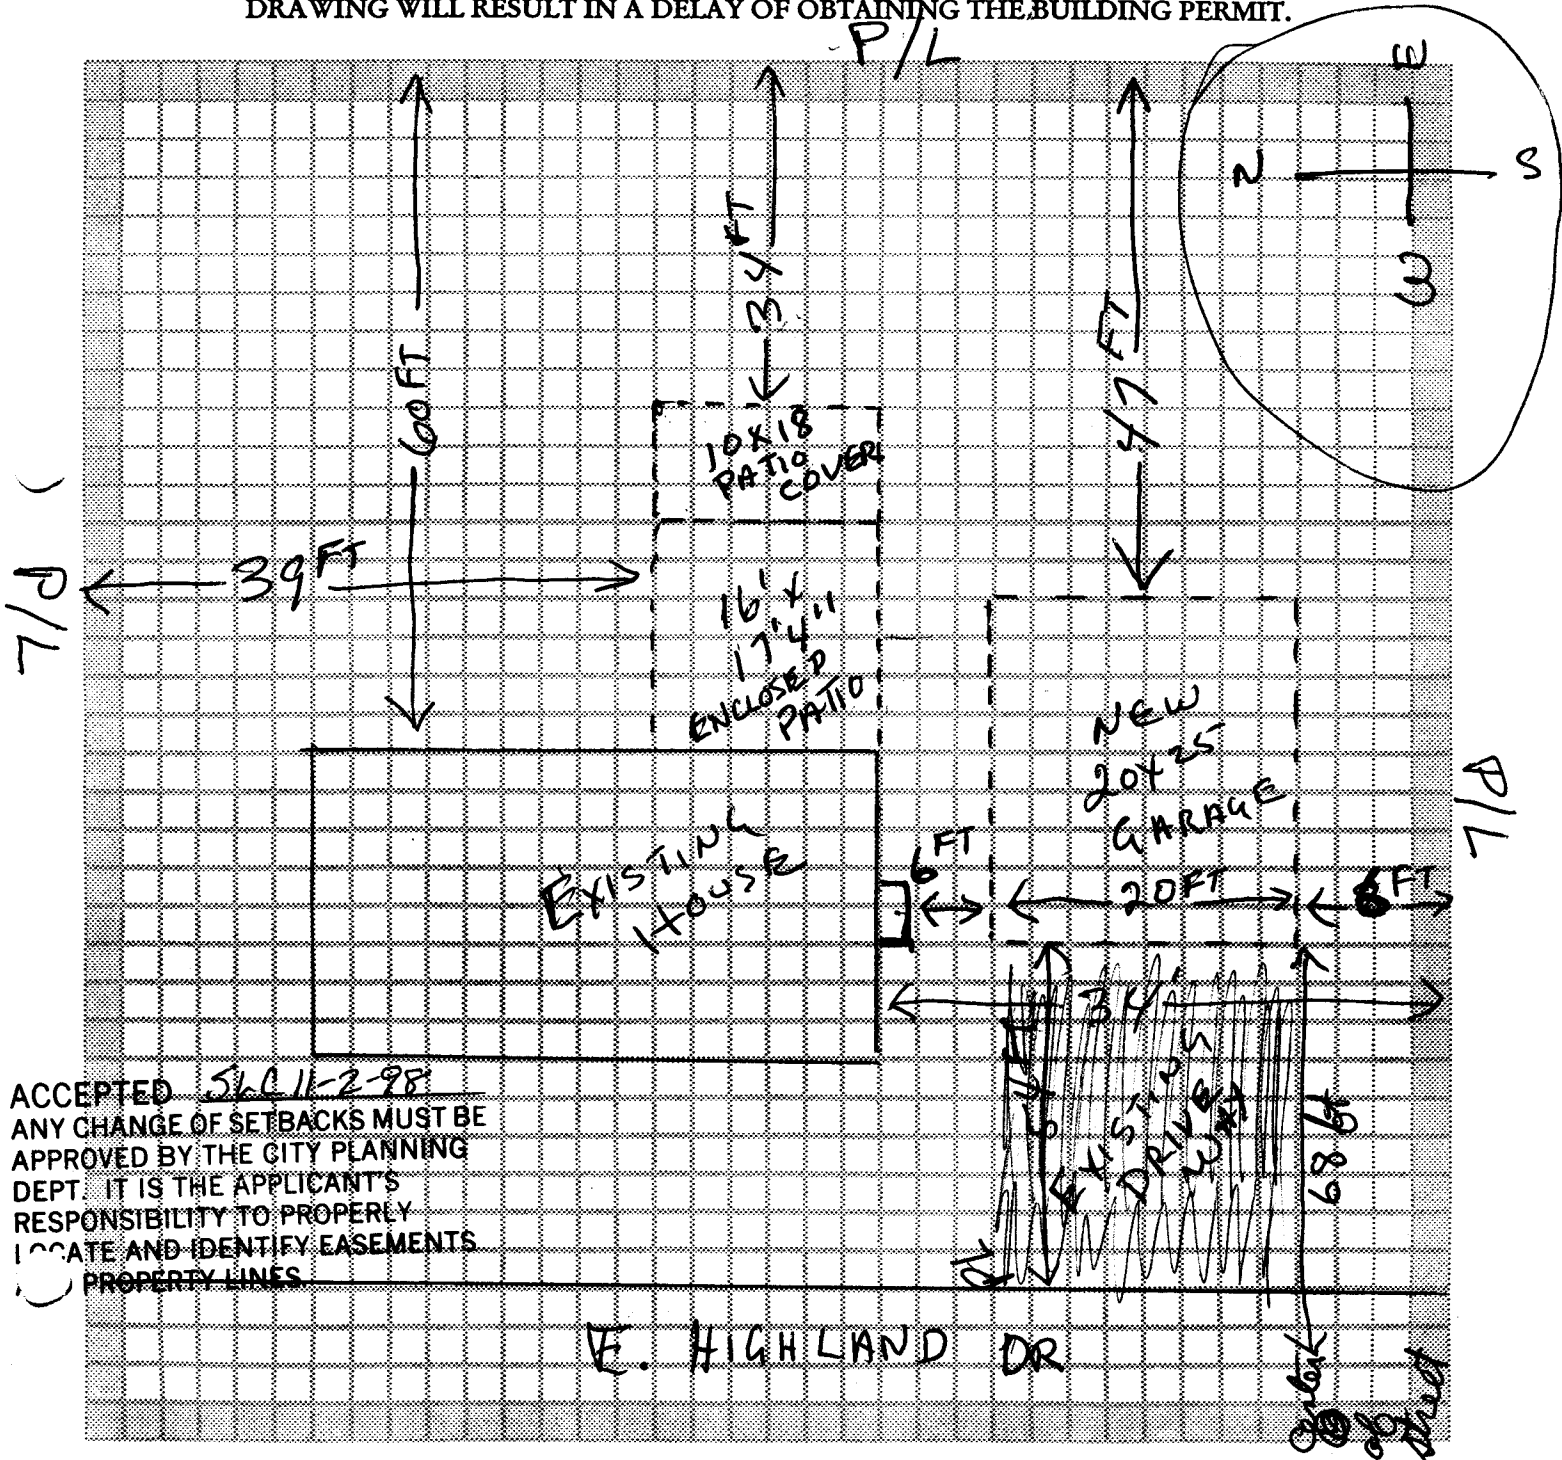 DRAWING WILL RESULT IN A DELAY OF OBTAINING THE BUILDING PERMIT.
P/L
E
N
S
W
34 FT
47 FT
60 FT
10 X 18
PATIO
COVER
P/L
39 FT
16' X
17'4"
ENCLOSED
PATIO
NEW
20X25
GARAGE
P/L
EXISTING
HOUSE
6 FT
20 FT
FT
34'
EXISTING
DRIVE
WAY
68 ft
ACCEPTED SLC 11-2-98
ANY CHANGE OF SETBACKS MUST BE
APPROVED BY THE CITY PLANNING
DEPT. IT IS THE APPLICANT'S
RESPONSIBILITY TO PROPERLY
LOCATE AND IDENTIFY EASEMENTS
PROPERTY LINES
P/L
E. HIGHLAND DR
center
of
street